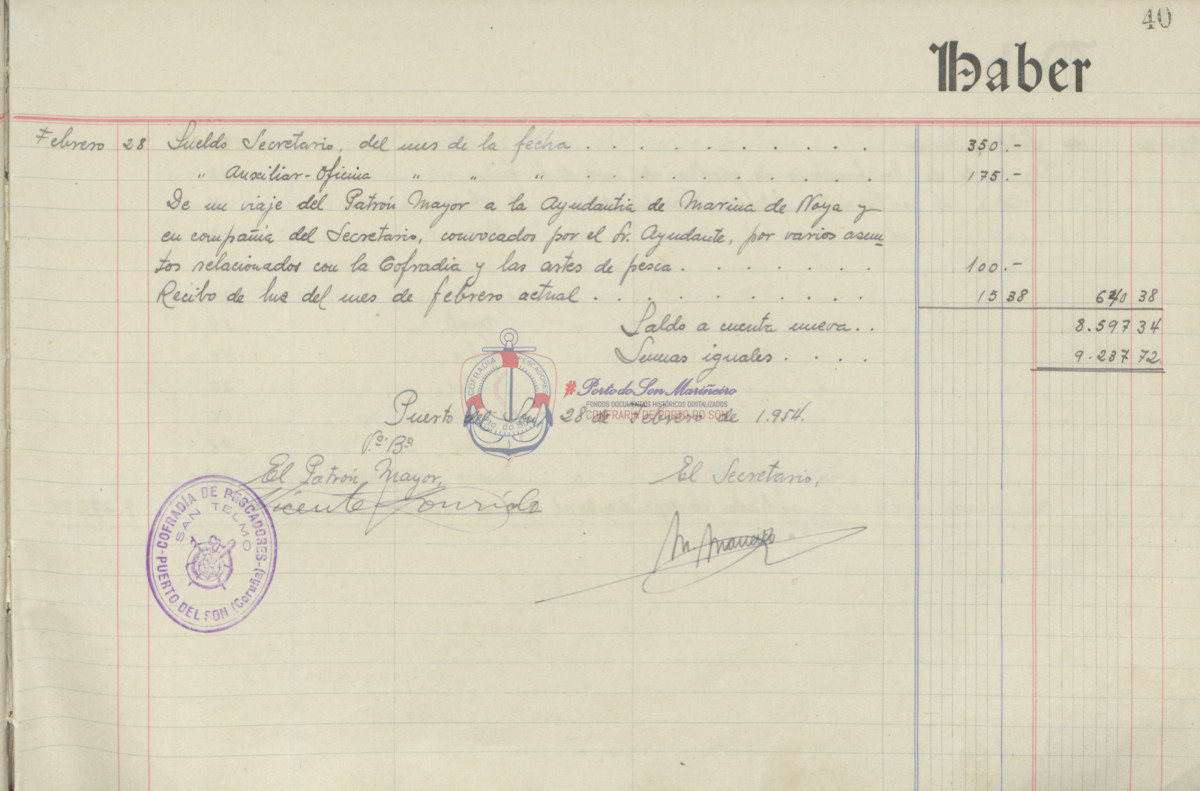 40
Haber
Febrero 28 Sueldo Secretario, del mes de la fecha . . . . . . . . . . 350.-
" Auxiliar-Oficina " " " . . . . . . . . . . 175.-
De un viaje del Patrón Mayor a la Ayudantia de Marina de Noya y
en compañia del Secretario, convocados por el Sr. Ayudante, por varios asun-
tos relacionados con la Cofradia y las artes de pesca . . . . . . . 100.-
Recibo de luz del mes de febrero actual . . . . . . . . . . 15 38 640 38
Saldo a cuenta nueva . . 8.597 34
Sumas iguales . . . . 9.237 72
COFRADIA PESCADORES
#Porto do Son Mariñeiro
FONDOS DOCUMENTAIS HISTÓRICOS DIXITALIZADOS
CONFRARÍA DE PORTO DO SON
Puerto del Son, 28 de Febrero de 1.954.
Vº. Bº.
El Patrón Mayor, El Secretario,
Vicente
COFRADÍA DE PESCADORES-PUERTO DEL SON (Coruña)-
SAN TELMO